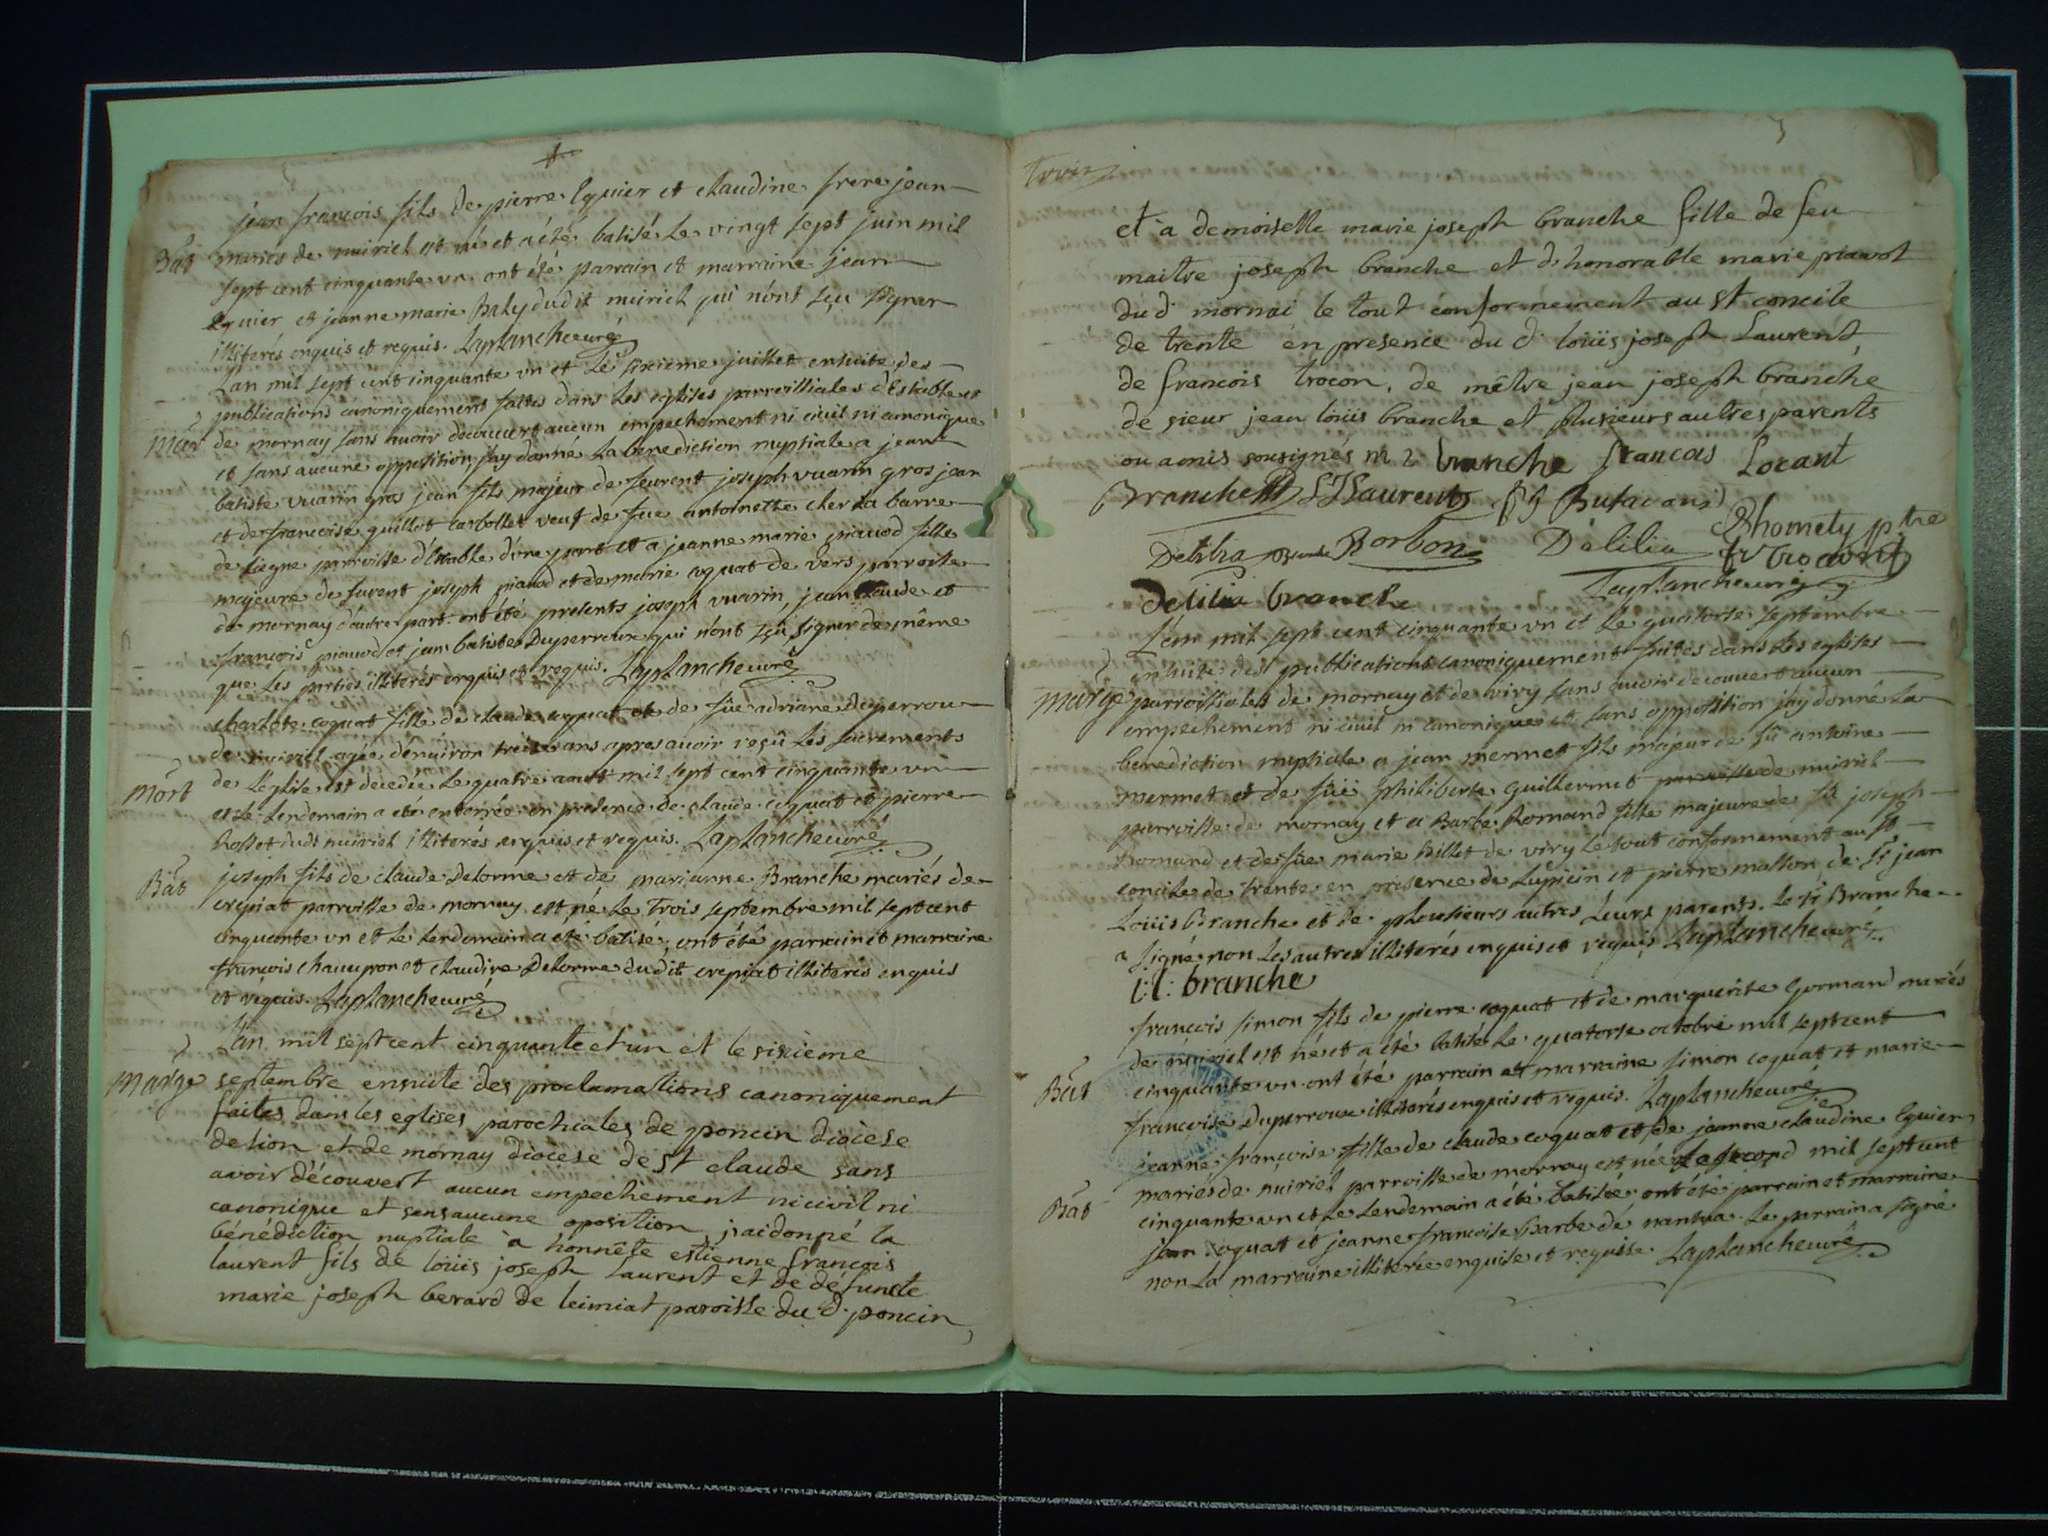 jean francois fils de pierre Eguier et claudine frere jean
Bat mariés de nuiriel est né et a été batisé le vingt sept juin mil
sept cent cinquante un ont été parrain et marraine jean
Eguier et jeanne marie Baly dudit nuiriel qui n'ont sçu signer
illiterés enquis et requis. Laplanche curé
L'an mil sept cent cinquante un et le sixieme juillet ensuite des
publications canoniquement faites dans les eglises parroissiales d'Estables et
Mar de mornay sans avoir decouvert aucun empechement ni civil ni canonique
et sans aucune opposition j'ay donné la benediction nuptiale a jean
batiste vuarin gros jean fils majeur de feurent joseph vuarin gros jean
et de francoise guillot carbollet veuf de feue antoinette cher la barre
de parroisse d'Etable d'une part et a jeanne marie piavod fille
majeure de furent joseph piavod et de marie coquat de vers parroisse
de mornay d'autre part. ont été presents joseph vuarin, jean claude et
francois piavod et jean batiste Duperroux qui n'ont sçu signer de même
que les parties illiterés enquis et requis. Laplanche curé
charlote coquat fille de claude coquat et de füe adriane Duperrou
de nuiriel agée d'environ treize ans apres avoir reçû les sacrements
Mort de l'eglise est décedée le quatre aout mil sept cent cinquante un
et le lendemain a eté enterrée en presence de claude coquat et pierre
Rosset dudt nuiriel illiterés enquis et requis. Laplanche curé
Bat joseph fils de claude Delorme et de marianne Branche mariés de
crepiat parroisse de mornay est né le trois septembre mil sept cent
cinquante un et le lendemain a eté batisé, ont été parrain et marraine
francois chaneyron et claudine Delorme dudit crepiat illiterés enquis
et requis. Laplanche curé
L'an mil sept cent cinquante et un et le sixieme
Marge septembre ensuite des proclamations canoniquement
faites dans les eglises parochiales de poncin diocèse
de lion et de mornay diocèse de st claude sans
avoir découvert aucun empechement ni civil ni
canonique et sans aucune oposition j'ai donné la
bénédiction nuptiale a honnête estienne francois
laurent fils de loüis joseph laurent et de défuncte
marie joseph berard de leimiat paroisse du d. poncin
trois
et a demoiselle marie joseph branche fille de feu
maitre joseph branche et d'honorable marie piavot
du d. mornai le tout conformement au st concile
de trente en presence du d. loüis joseph Laurent
de francois trocon, de mêtre jean joseph branche
de sieur jean loüis branche et plusieurs autres parents
ou amis sousignés branche francois Locant
Branche Laurent
Delilia Borbon Delilia Rhomety ptre
Delilia branche Laplanche curé
L'an mil sept cent cinquante un et le quatorze septembre
ensuite des publications canoniquement faites dans les eglises
Marge parroissiales de mornay et de viry sans avoir decouvert aucun
empechement ni civil ni canonique et sans opposition j'ay donné la
benediction nuptiale a jean mermet fils majeur de fü antoine
mermet et de füe philiberte guillermet parroisse de nuiriel
parroisse de mornay et a Barbe Romand fille majeure de fü joseph
Romand et de füe marie Billet de viry le tout conformement au st
concile de trente en presence de Lupicin et pierre masson, de Sr jean
Loüis Branche et de plusieurs autres leurs parents. Le Sr Branche
a signé non les autres illiterés enquis et requis Laplanche curé
i:l: branche
francois simon fils de pierre coquat et de marguerite Gormand mariés
de nuiriel est né et a été batisé le quatorze octobre mil sept cent
Bat cinquante un ont été parrain et marraine simon coquat et marie
francoise Duperroux illiterés enquis et requis. Laplanche curé
jeanne francoise fille de claude coquat et de jeanne claudine Eguier
mariés de nuiriel parroisse de mornay est née le second mil sept cent
Bat cinquante un et le lendemain a été batisée. ont été parrain et marraine
jean coquat et jeanne francoise Barbe de nantua. Le parrain a signé
non la marraine illiterée enquise et requise. Laplanche curé